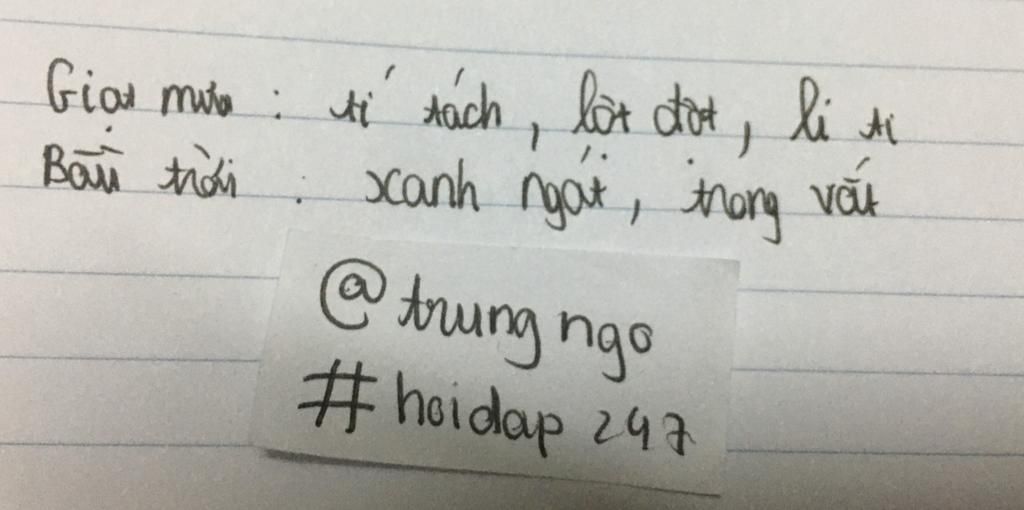 Giọt mưa : tí tách, lột đột, li ti
Bầu trời : xanh ngắt, trong vắt
@trung ngo
#hoidap 247